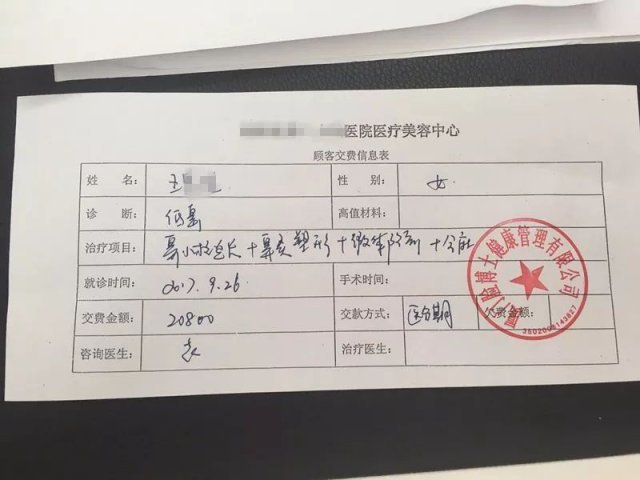 医院医疗美容中心
顾客交费信息表
姓 名: 王 性 别: 女
诊 断: 低鼻 高值材料:
治疗项目: 鼻小柱延长+鼻尖塑形+
就诊时间: 2017.9.26 手术时间:
交费金额: 20800 交款方式: 分期 欠费金额:
咨询医生: 治疗医生:
博士健康管理有限公司